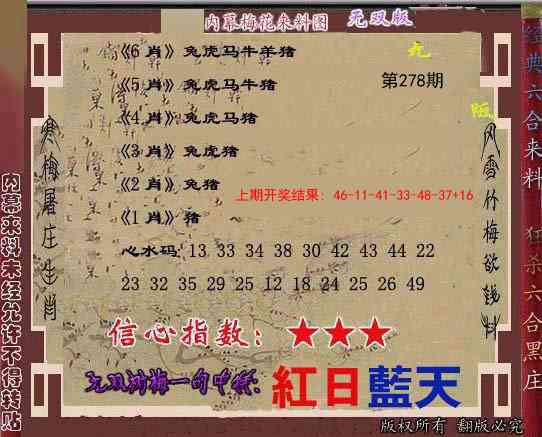 内幕梅花来料图 无双版
《6 肖》兔虎马牛羊猪
《5 肖》兔虎马牛猪
第278期
《4 肖》兔虎马猪
《3 肖》兔虎猪
《2 肖》兔猪
上期开奖结果：46-11-41-33-48-37+16
《1 肖》猪
心水码: 13 33 34 38 30 42 43 44 22
23 32 35 29 25 12 18 24 25 26 49
信心指数：★★★
紅日藍天
寒梅屠庄生肖
风雪竹梅欲钱料
内幕来料未经允许不得转贴
经典六合来料
狂杀六合黑庄
版权所有 翻版必究